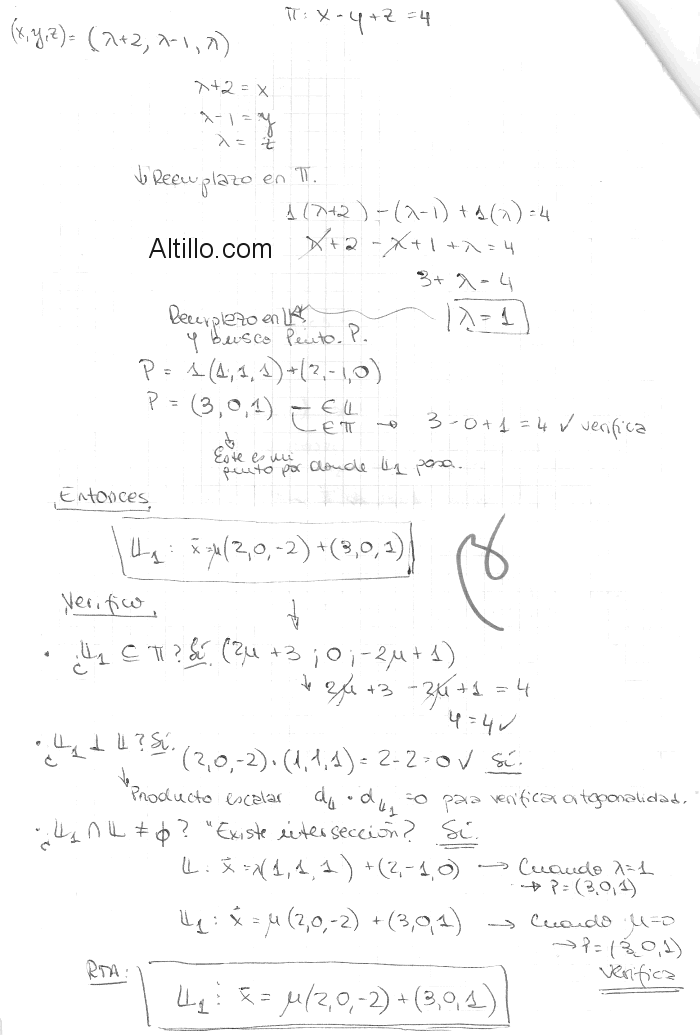 π: x - y + z = 4
(x,y,z) = (λ+2, λ-1, λ)
λ+2 = x
λ-1 = y
λ = z
↓ Reemplazo en π.
1(λ+2) - (λ-1) + 1(λ) = 4
λ+2 - λ+1 + λ = 4
3 + λ = 4
Altillo.com
λ = 1
Reemplazo en 𝕃
y busco Punto. P.
P = 1(1,1,1)+(2,-1,0)
P = (3,0,1) ∈ 𝕃
∈ π → 3-0+1 = 4 ✓ verifica
Este es mi
punto por donde 𝕃1 pasa.
Entonces
𝕃1 : x̄ = μ(2,0,-2) + (3,0,1)
Verifico
• ¿𝕃1 ⊆ π? Sí (2μ+3 ; 0 ; -2μ+1)
↓ 2μ+3 - 2μ+1 = 4
4 = 4 ✓
• ¿𝕃1 ⊥ 𝕃? Sí. (2,0,-2)·(1,1,1) = 2-2=0 ✓ Sí.
Producto escalar d𝕃 · d𝕃1 = 0 para verificar ortogonalidad.
• ¿𝕃1 ∩ 𝕃 ≠ ϕ? "Existe intersección? Sí.
𝕃 : x̄ = λ(1,1,1) + (2,-1,0) → Cuando λ=1
→ P=(3,0,1)
𝕃1 : x̄ = μ(2,0,-2) + (3,0,1) → Cuando μ=0
→ P=(3,0,1)
Verifica
RTA: 𝕃1 : x̄ = μ(2,0,-2)+(3,0,1)